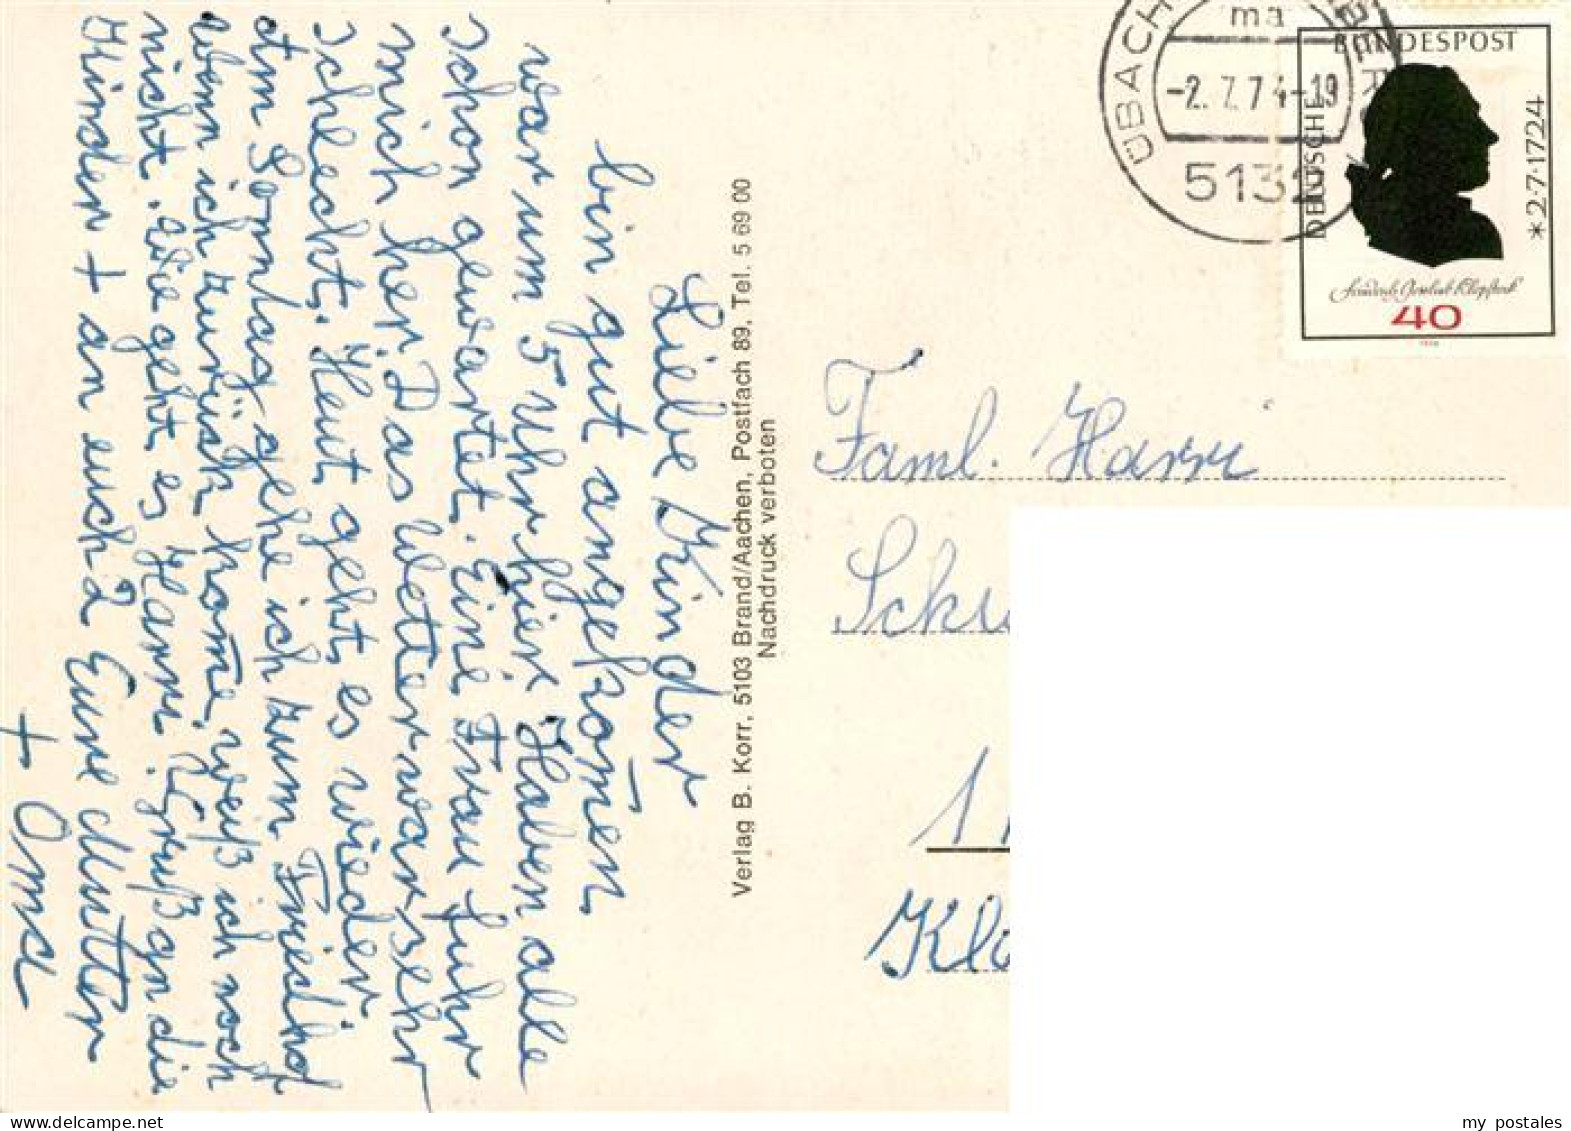 Liebe Kinder
bin gut angekom̄en,
war um 5 Uhr hier. Haben alle
schon gewartet. Eine Frau fuhr
mich her. Das Wetter war sehr
schlecht. Heut geht es wieder.
Am Sonntag gehe ich zum Friedhof
wann ich zurück kom̄e, weiß ich noch
nicht. Wie geht es Harri. Gruß an die
Kinder + an euch 2 Eure Mutter
+ Oma
Verlag B. Korr, 5103 Brand/Aachen, Postfach 89, Tel. 5 69 00
Nachdruck verboten
ÜBACH
ma
-2.7.74-19
5132
DEUTSCHE
BUNDESPOST
*2·7·1724
Friedrich Gottlieb Klopstock
40
Faml. Harri
my postales